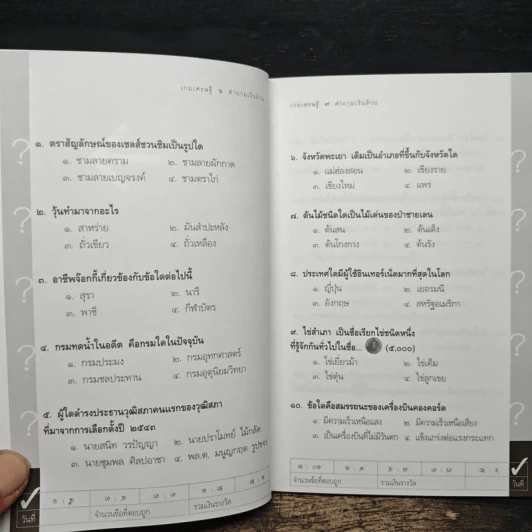 เกมเศรษฐี ๖ คำถามเงินล้าน
๑. ตราสัญลักษณ์ของเชลล์ชวนชิมเป็นรูปใด
๑. ชามลายคราม ๒. ชามลายผักกาด
๓. ชามลายเบญจรงค์ ๔. ชามตราไก่
๒. วุ้นทำมาจากอะไร
๑. สาหร่าย ๒. มันสำปะหลัง
๓. ถั่วเขียว ๔. ถั่วเหลือง
๓. อาชีพจ๊อกกี้เกี่ยวข้องกับข้อใดต่อไปนี้
๑. สุรา ๒. นารี
๓. พาชี ๔. กีฬาบัตร
๔. กรมทดน้ำในอดีต คือกรมใดในปัจจุบัน
๑. กรมประมง ๒. กรมอุทกศาสตร์
๓. กรมชลประทาน ๔. กรมอุตุนิยมวิทยา
๕. ผู้ใดดำรงประธานวุฒิสภาคนแรกของวุฒิสภา
ที่มาจากการเลือกตั้งปี ๒๕๔๓
๑. นายสนิท วรปัญญา ๒. นายปราโมทย์ ไม้กลัด
๓. นายชุมพล ศิลปอาชา ๔. พล.ต. มนูญกฤต รูปขจร
จำนวนข้อที่ตอบถูก รวมเงินรางวัล
วันที่
เกมเศรษฐี ๗ คำถามเงินล้าน
๖. จังหวัดพะเยา เดิมเป็นอำเภอที่ขึ้นกับจังหวัดใด
๑. แม่ฮ่องสอน ๒. เชียงราย
๓. เชียงใหม่ ๔. แพร่
๗. ต้นไม้ชนิดใดเป็นไม้เด่นของป่าชายเลน
๑. ต้นสน ๒. ต้นเต็ง
๓. ต้นโกงกาง ๔. ต้นรัง
๘. ประเทศใดมีผู้ใช้อินเทอร์เน็ตมากที่สุดในโลก
๑. ญี่ปุ่น ๒. เยอรมนี
๓. อังกฤษ ๔. สหรัฐอเมริกา
๙. ไข่สำเภา เป็นชื่อเรียกไข่ชนิดหนึ่ง
ที่รู้จักกันทั่วไปในชื่อ... (๕,๐๐๐)
๑. ไข่เยี่ยวม้า ๒. ไข่เค็ม
๓. ไข่ตุ๋น ๔. ไข่ลูกเขย
๑๐. ข้อใดคือสมรรถนะของเครื่องบินคองคอร์ด
๑. มีความเร็วเหนือแสง ๒. มีความเร็วเหนือเสียง
๓. เป็นเครื่องบินที่ไม่มีวันตก ๔. แข็งแกร่งต่อแรงกระแทก
จำนวนข้อที่ตอบถูก รวมเงินรางวัล
วันที่